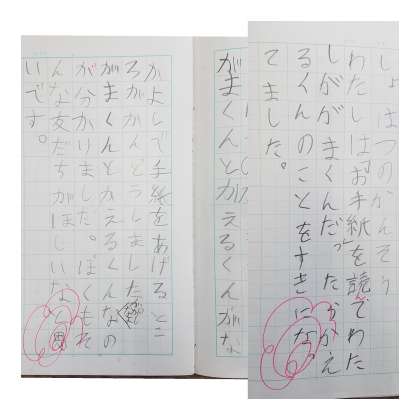 しょはつのかんそう
わたしは「お手紙を読んでわた
しががまくんだったらかえ
るくんのことをすきにな
てました。
がまくんとかえるくんがな
かよしで手紙をあげるとこ
ろがかんどうしました
がまくんとかえるくんなの
が分かりました。ぼくもそ
んな友だちがほしいな
いです。